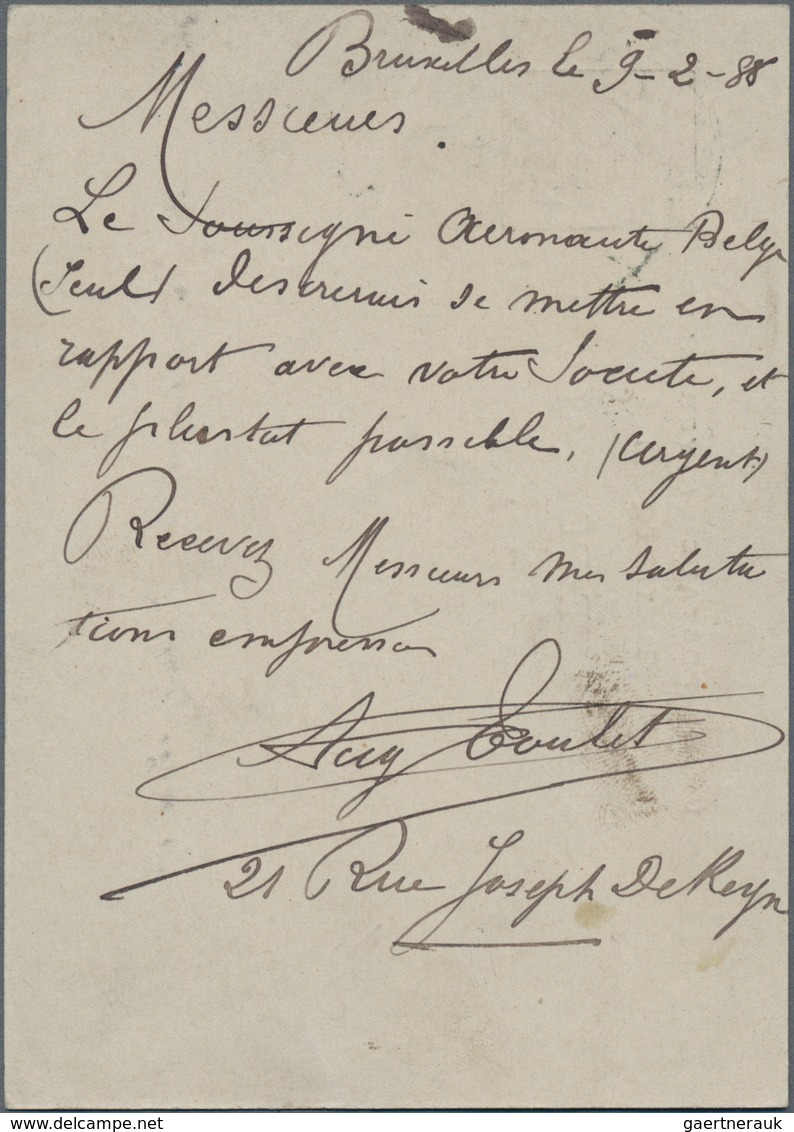 Bruxelles le 9-2-88
Messieurs.
Le Soussigné Aeronaute Belge
(Seul) desirerais se mettre en
rapport avec votre Societe, et
le plustat possible, (Urgent)
Recevez Messieurs mes saluta
tions empressées
Aug Toulet
21 Rue Joseph DeKeyn
gaertnerauk / delcampe.net